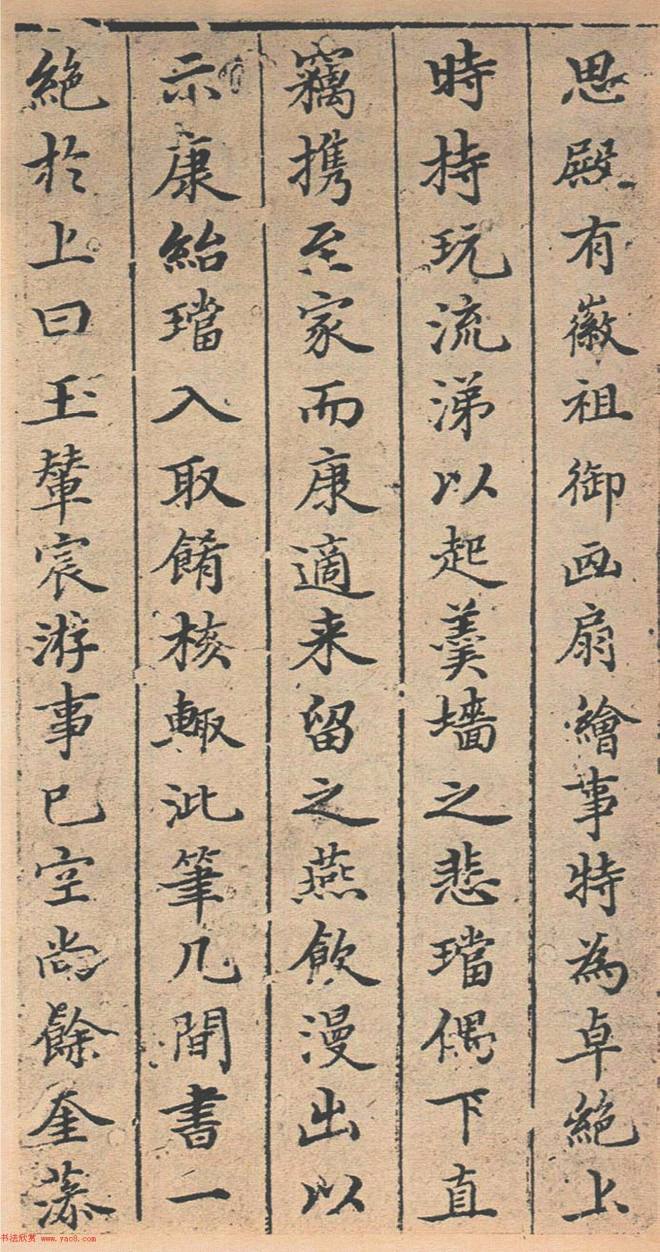 思殿有徽祖御画扇繪事特為卓絕上
時持玩流涕以起羹墻之悲璫偶下直
竊携至家而康適来留之燕飲漫出以
示康紿璫入取餚核輙泚筆几間書一
絕於上曰玉輦宸游事已空尚餘奎藻
书法欣赏 www.yac8.com